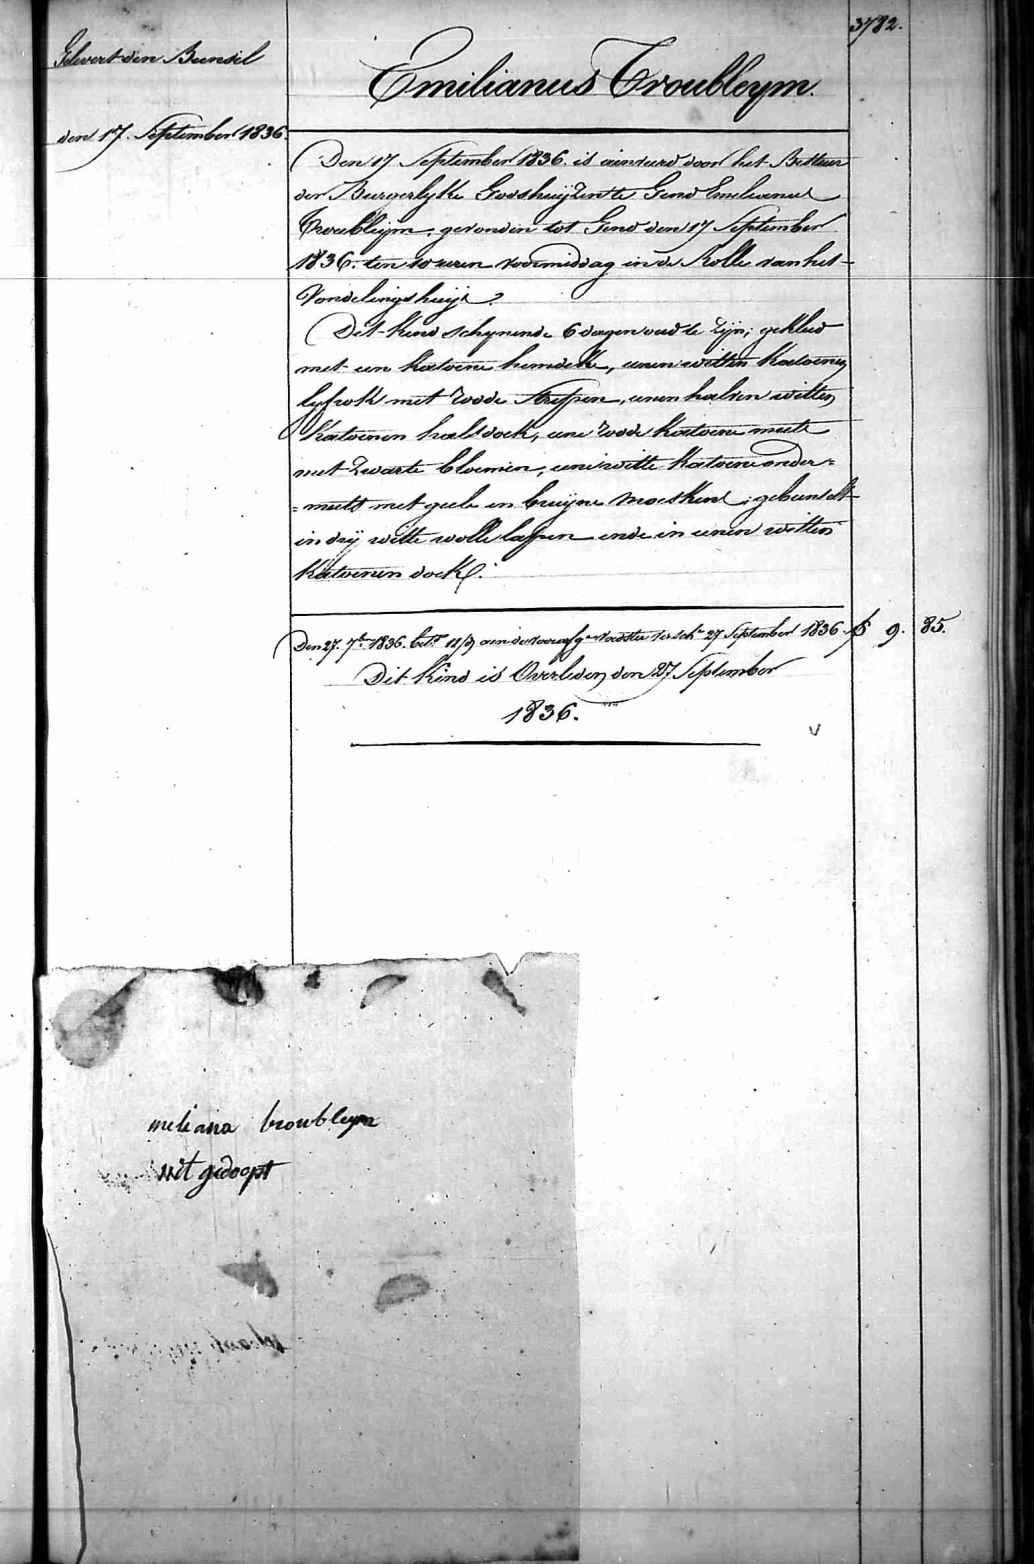 3782.
Gelevert den Bundel
den 17. September 1836.
Emilianus Troubleyn.
Den 17 September 1836. is aenveerd door het Bestuer
der Burgerlyke Godshuijzen te Gend Emilianus
Troubleyn, gevonden tot Gend den 17 September
1836. ten 10 uren voormiddag in de Rolle van het
Vondelingshuijs.
Dit Kind schynende 6 dagen oud te zyn; gekleed
met een katoene hemdeke, eenen witten katoenen
lyfrok met roode strepen, eenen halven witten
katoenen halsdoek, eene roode katoene muts
met zwarte bloemen, eene witte katoene onder=
=muts met geele en bruyne moeskens; gebunselt
in dry witte wolle lappen ende in eenen witten
katoenen doek.
Den 27. 7b. 1836. bet. 11/9 aen de voedster 27 September 1836 9. 85.
Dit Kind is Overleden den 27 September
1836.
meliana troubleyn
niet gedoopt